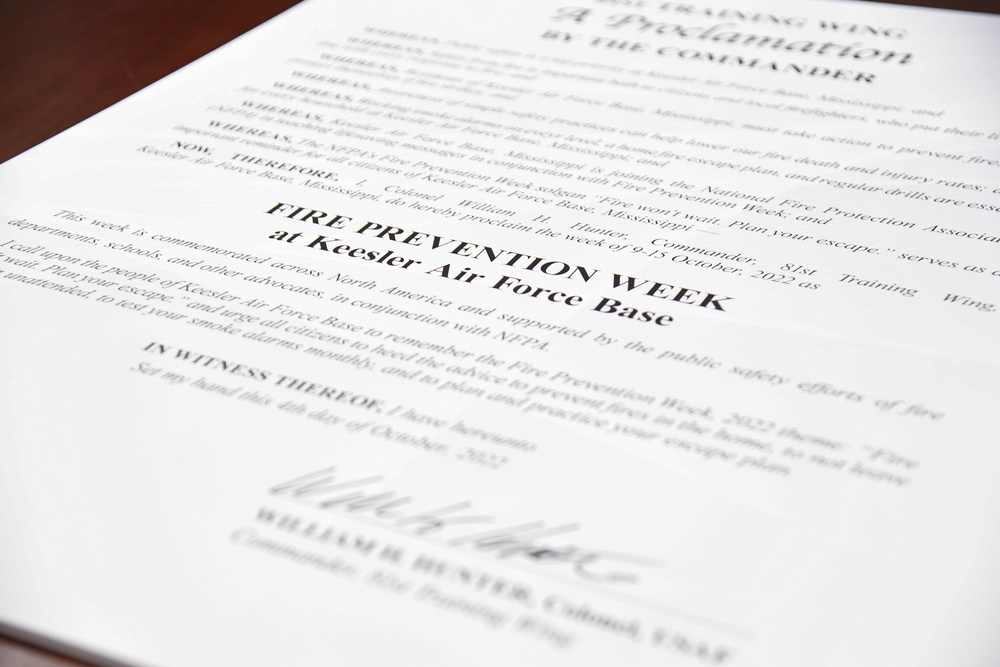 TRAINING WING
A Proclamation
BY THE COMMANDER
WHEREAS,
WHEREAS, Keesler Air Force Base, Mississippi, and
WHEREAS, Residents of Keesler Air Force Base, Mississippi, must take action to prevent fires
WHEREAS, of simple safety practices can help lower our fire death and injury rates;
WHEREAS, Working smoke alarms on every level, a home fire escape plan, and regular drills are
for every household at Keesler Air Force Base, Mississippi, and
WHEREAS, Keesler Air Force Base, Mississippi is joining the National Fire Protection
(NFPA) in teaching lifesaving messages in conjunction with Fire Prevention Week; and
WHEREAS, The NFPA's Fire Prevention Week solgan "Fire won't wait. Plan your escape. · serves as
important reminder for all citizens of Keesler Air Force Base, Mississippi
NOW, THEREFORE, I, Colonel William H. Hunter, Commander, 81st Training Wing,
Keesler Air Force Base, Mississippi, do hereby proclaim the week of 9-15 October, 2022 as
FIRE PREVENTION WEEK
at Keesler Air Force Base
This week is commemorated across North America and supported by the public safety efforts of fire
departments, schools, and other advocates, in conjunction with NFPA.
I call upon the people of Keesler Air Force Base to remember the Fire Prevention Week, 2022 theme: "Fire
wait. Plan your escape. " and urge all citizens to heed the advice to prevent fires in the home, to not leave
unattended, to test your smoke alarms monthly, and to plan and practice your escape plan.
IN WITNESS THEREOF, I have hereunto
Set my hand this 4th day of October, 2022
WILLIAM H. HUNTER, Colonel, USAF
Commander, 81st Training Wing